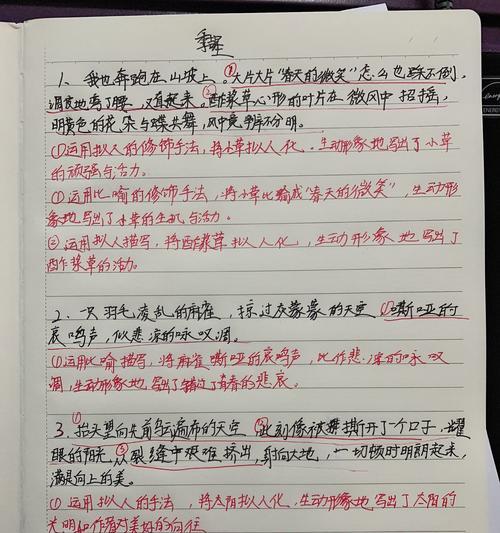 1、我也奔跑在山坡上。①大片大片“春天的微笑”怎么也踩不倒,
调皮地弯了腰,又直起来。②酢浆草心形的叶片在微风中招摇,
明黄色的花朵与蝶共舞,风中竟辨不分明。
①运用拟人的修饰手法,将小草拟人化,生动形象地写出了小草
的顽强与活力。
①运用比喻的修饰手法,将小草比喻成“春天的微笑”,生动形
象地写出了小草的生机与活力。
②运用拟人描写,将酢浆草拟人化,生动形象地写出了
酢浆草的活力。
2、一只羽毛凌乱的麻雀,掠过灰蒙蒙的天空①嘶哑的
哀鸣声,似悲凉的咏叹调。
①运用比喻描写,将麻雀嘶哑的哀鸣声,比作悲凉的咏叹
调,生动形象地写出了错过了青春的悲哀。
①
3、抬头望向先前乌云遍布的天空②此刻像被撕开了一个口子,耀
眼的阳光,③从裂缝中艰难挤出,射向大地,一切顿时明朗起来,
满是向上的美。
①运用拟人的手法,将太阳拟人化,生动形象地写出了太阳的
光明和作者对美好的向往